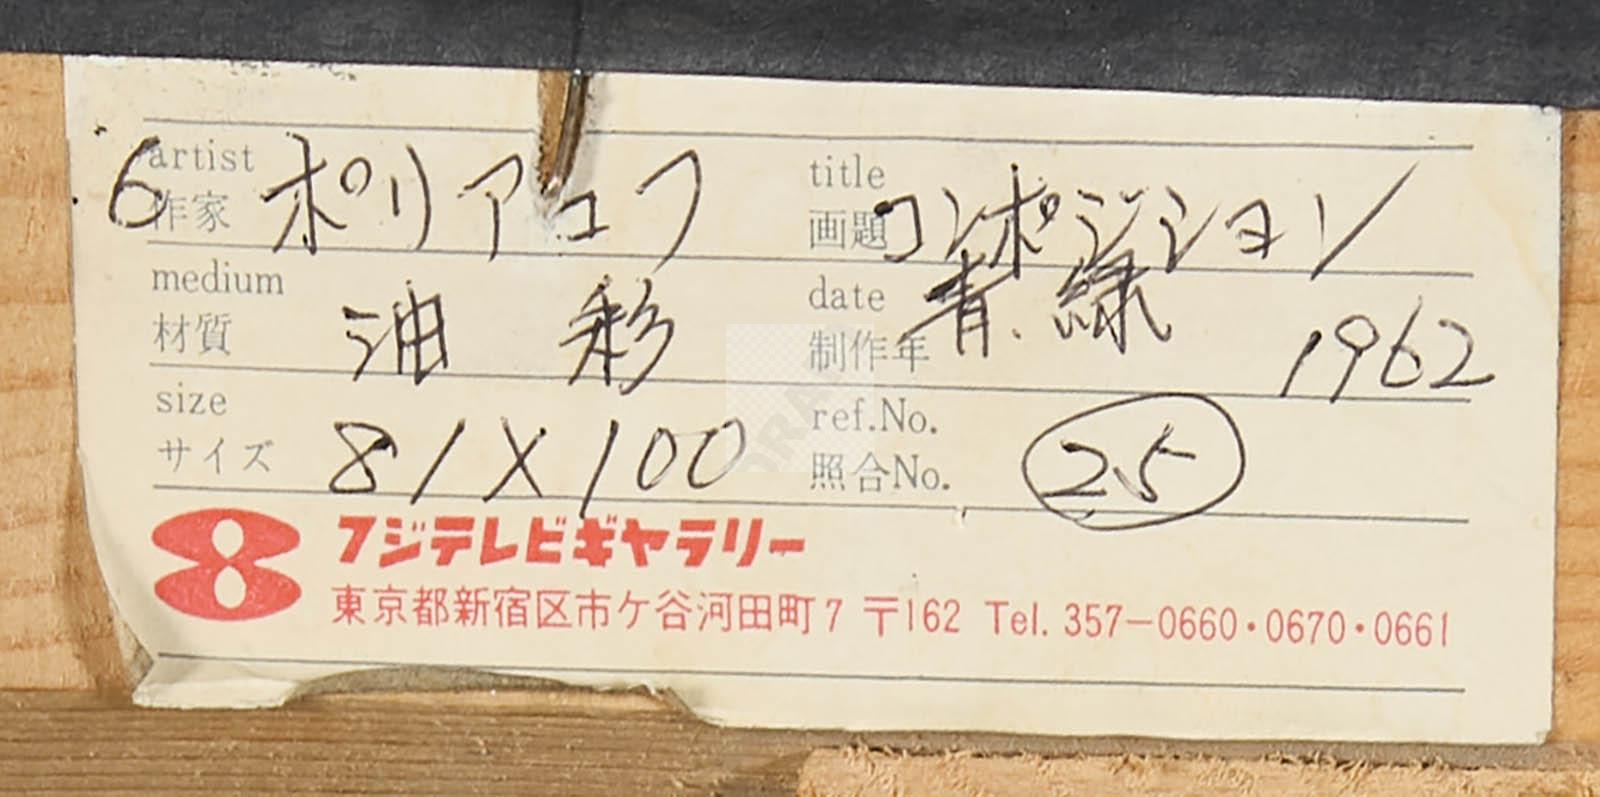 6 artist 作家 ポリアコフ
title 画題 コンポジション
青.緑
medium 材質 油彩
date 制作年 1962
size サイズ 81X100
ref.No. 照合No. 25
フジテレビギャラリー
東京都新宿区市ケ谷河田町7 〒162 Tel. 357-0660・0670・0661